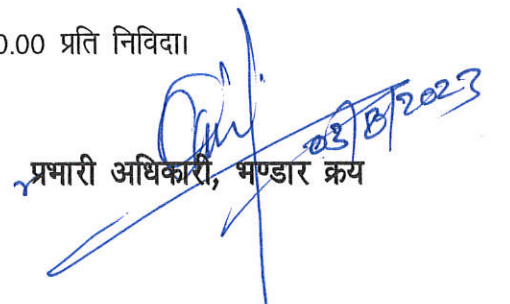 0.00 प्रति निविदा।
03/8/2023
प्रभारी अधिकारी, भण्डार क्रय